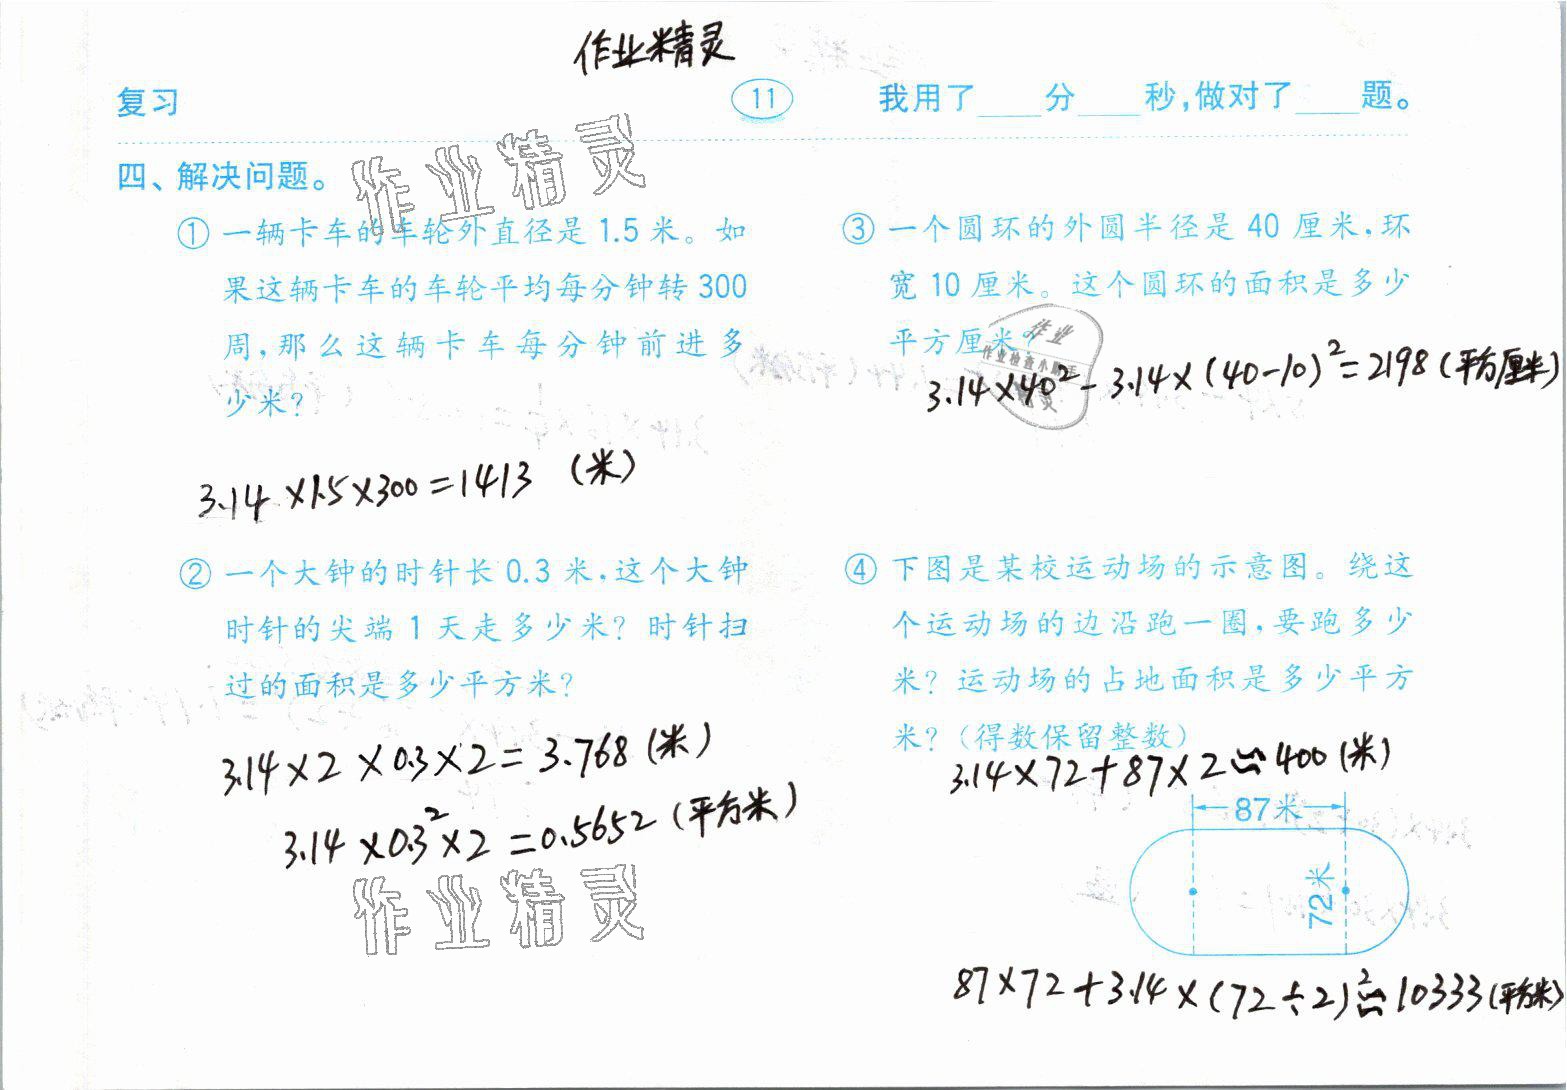 作业精灵
复习
11
我用了____分____秒,做对了____题。
四、解决问题。
作业精灵
① 一辆卡车的车轮外直径是 1.5 米。如
果这辆卡车的车轮平均每分钟转 300
周,那么这辆卡车每分钟前进多
少米?
3.14×1.5×300=1413 (米)
② 一个大钟的时针长 0.3 米,这个大钟
时针的尖端 1 天走多少米? 时针扫
过的面积是多少平方米?
3.14×2×0.3×2=3.768(米)
3.14×0.3²×2=0.5652(平方米)
作业精灵
③ 一个圆环的外圆半径是 40 厘米,环
宽 10 厘米。这个圆环的面积是多少
平方厘米?
作业
作业检查小助手
精灵
3.14×40²-3.14×(40-10)²=2198(平方厘米)
④ 下图是某校运动场的示意图。绕这
个运动场的边沿跑一圈,要跑多少
米? 运动场的占地面积是多少平方
米? (得数保留整数)
3.14×72+87×2≈400(米)
87米
72米
87×72+3.14×(72÷2)²≈10333(平方米)